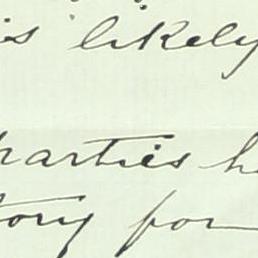 is likely
parties h
tory for